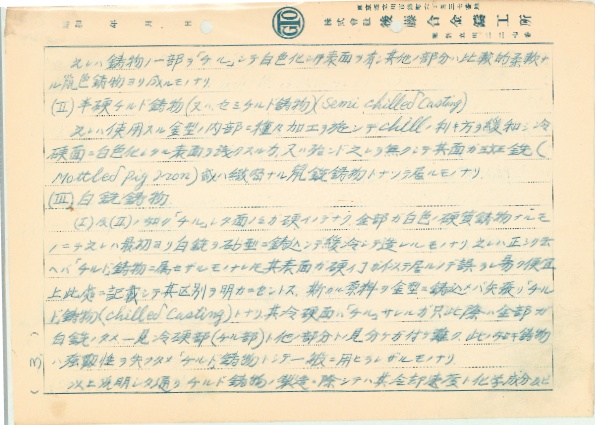 昭和 年 月 日
株式會社 後藤合金鑄工所
之レハ鋳物ノ一部ヲ「チル」シテ白色化シタ表面ヲ有シ其他ノ部分ハ比較的柔軟ナ
ル鼠色鋳物ヨリ成ルモノナリ
(II) 半硬チルド鋳物(又ハセミチルド鋳物)(Semi chilled Casting)
之レハ使用スル金型ノ内部ニ種々加工ヲ施シテchillノ利キ方ヲ緩和シ冷
硬面ニ白色化シタル表面ヲ浅クスルカ、又ハ殆ンド之レヲ無クシテ其面ガ斑銑(
Mottled Pig iron)或ハ緻密ナル鼠銑鋳物トナシテ居ルモノナリ
(III) 白銑鋳物
(I)及(II)ノ如ク「チル」シタ面ノミガ硬イノデナク全部ガ白色ノ硬質鋳物ナルモ
ノニテ之レハ最初ヨリ白銑ヲ砂型ニ鋳込シテ緩冷シテ造レルモノナリ 之レハ正シク云
ヘバ「チルド」鋳物ニ属セザルモノナレ共其表面ガ硬イ
上此処ニ記載シテ其区別ヲ明カニセントス、斯カル原料ヲ金型ニ鋳込メバ矢張「チル
ド」鋳物(chilled Casting)トナリ其冷硬面ハ「チル」サレルガ只此際ハ全部ガ
白銑ノタメ一見冷硬部(チル部)ト他ノ部分トノ見分ケガ付キ難ク、此ノ如キ鋳物
ハ強靱性ヲ欠クタメ「チルド」鋳物トシテ一般ニ用ヒラレザルモノナリ
以上説明シタ通リチルド鋳物ノ製造ニ際シテハ其冷却速度ト化学成分
(3)